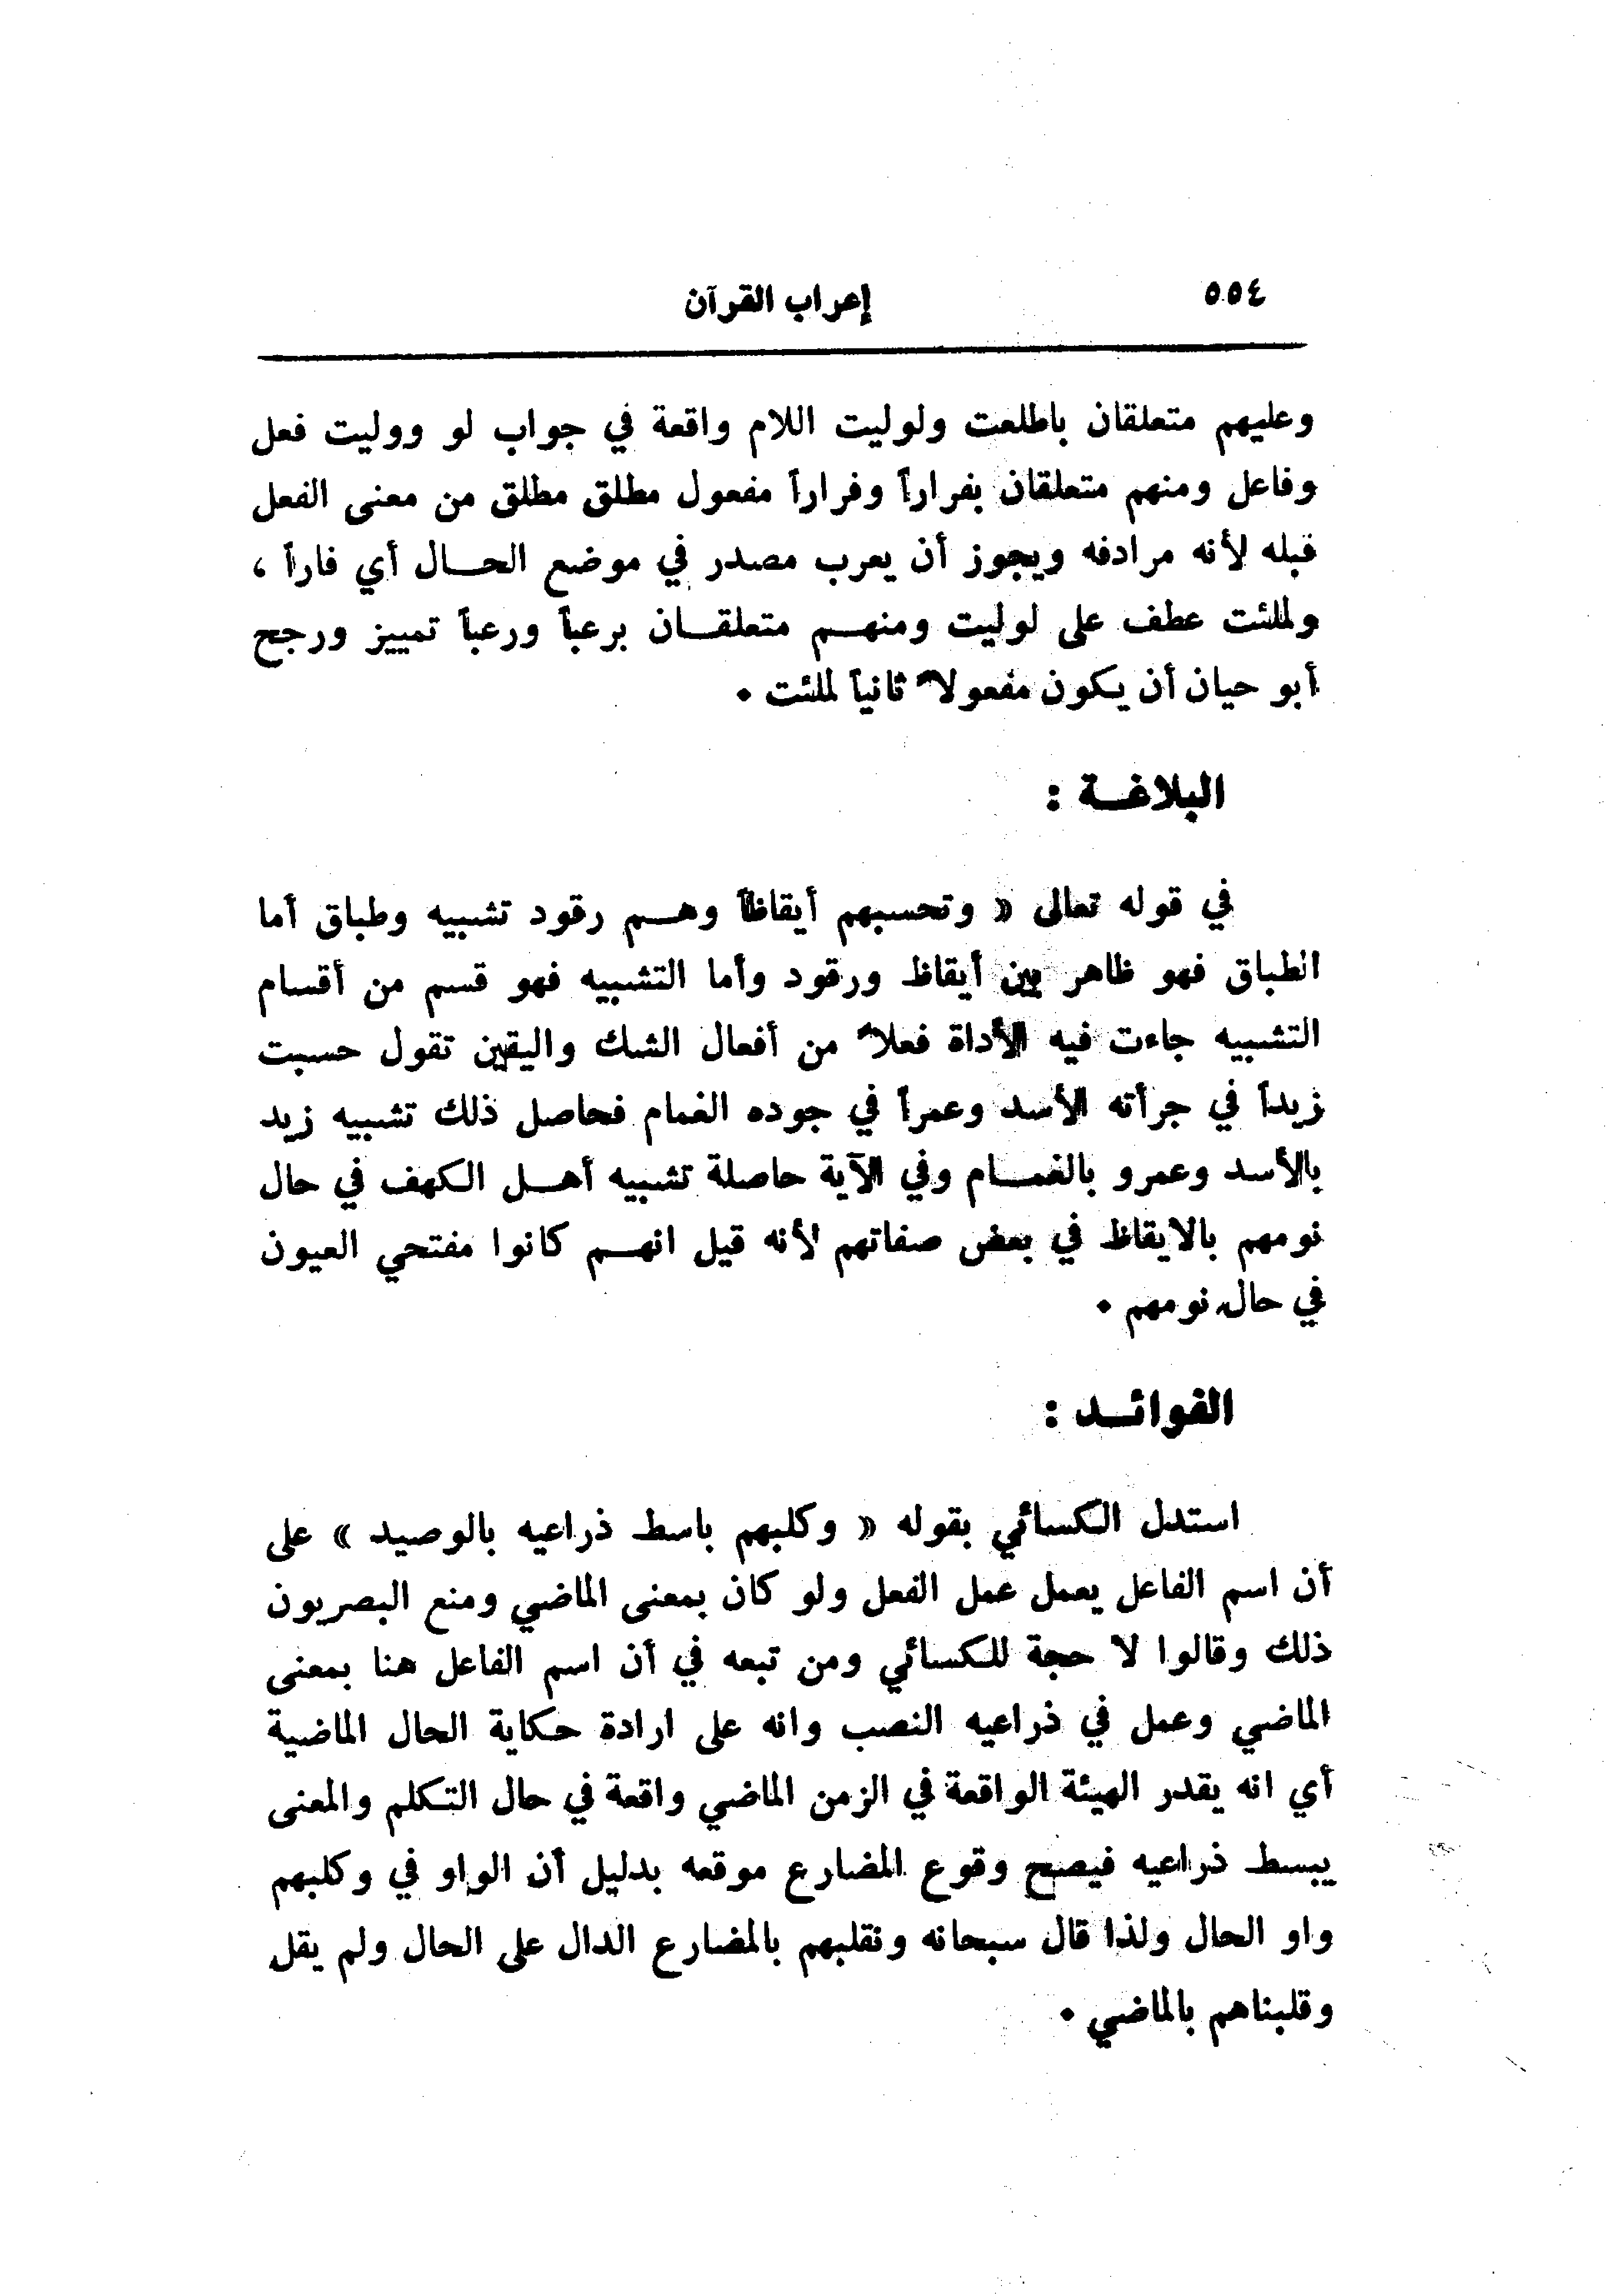 ٥٥٤
إعراب القرآن
وعليهم متعلقان باطلعت ولوليت اللام واقعة في جواب لو ووليت فعل
وفاعل ومنهم متعلقان بفراراً وفراراً مفعول مطلق مطلق من معنى الفعل
قبله لأنه مرادفه ويجوز أن يعرب مصدر في موضع الحال أي فاراً ،
ولملئت عطف على لوليت ومنهم متعلقان برعباً ورعباً تمييز ورجح
أبو حيان أن يكون مفعولاً ثانياً لملئت .
البلاغة :
في قوله تعالى « وتحسبهم أيقاظاً وهم رقود تشبيه وطباق أما
الطباق فهو ظاهر بين أيقاظ ورقود وأما التشبيه فهو قسم من أقسام
التشبيه جاءت فيه الأداة فعلاً من أفعال الشك واليقين تقول حسبت
زيداً في جرأته الأسد وعمراً في جوده الغمام فحاصل ذلك تشبيه زيد
بالأسد وعمرو بالغمام وفي الآية حاصلة تشبيه أهل الكهف في حال
نومهم بالايقاظ في بعض صفاتهم لأنه قيل انهم كانوا مفتحي العيون
في حال نومهم .
الفوائد :
استدل الكسائي بقوله « وكلبهم باسط ذراعيه بالوصيد » على
أن اسم الفاعل يعمل عمل الفعل ولو كان بمعنى الماضي ومنع البصريون
ذلك وقالوا لا حجة للكسائي ومن تبعه في أن اسم الفاعل هنا بمعنى
الماضي وعمل في ذراعيه النصب وانه على ارادة حكاية الحال الماضية
أي انه يقدر الهيئة الواقعة في الزمن الماضي واقعة في حال التكلم والمعنى
يبسط ذراعيه فيصح وقوع المضارع موقعه بدليل أن الواو في وكلبهم
واو الحال ولذا قال سبحانه ونقلبهم بالمضارع الدال على الحال ولم يقل
وقلبناهم بالماضي .